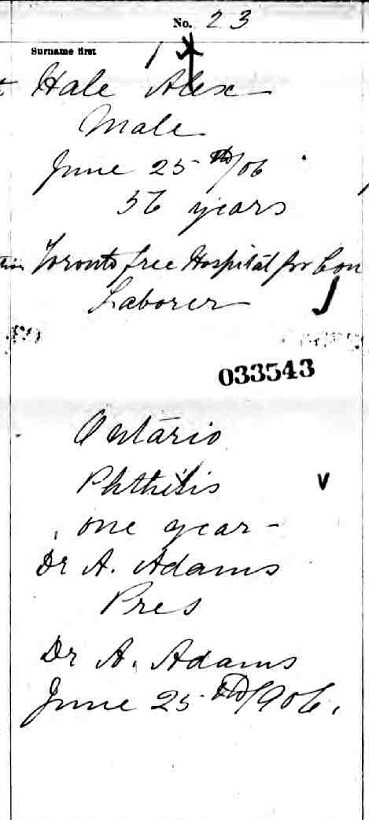 No. 23
Surname first
Hale Alex
Male
June 25th/06
56 years
Toronto free Hospital for Con
Laborer
033543
Ontario
Phthisis
one year
Dr A. Adams
Pres
Dr A. Adams
June 25th/906.